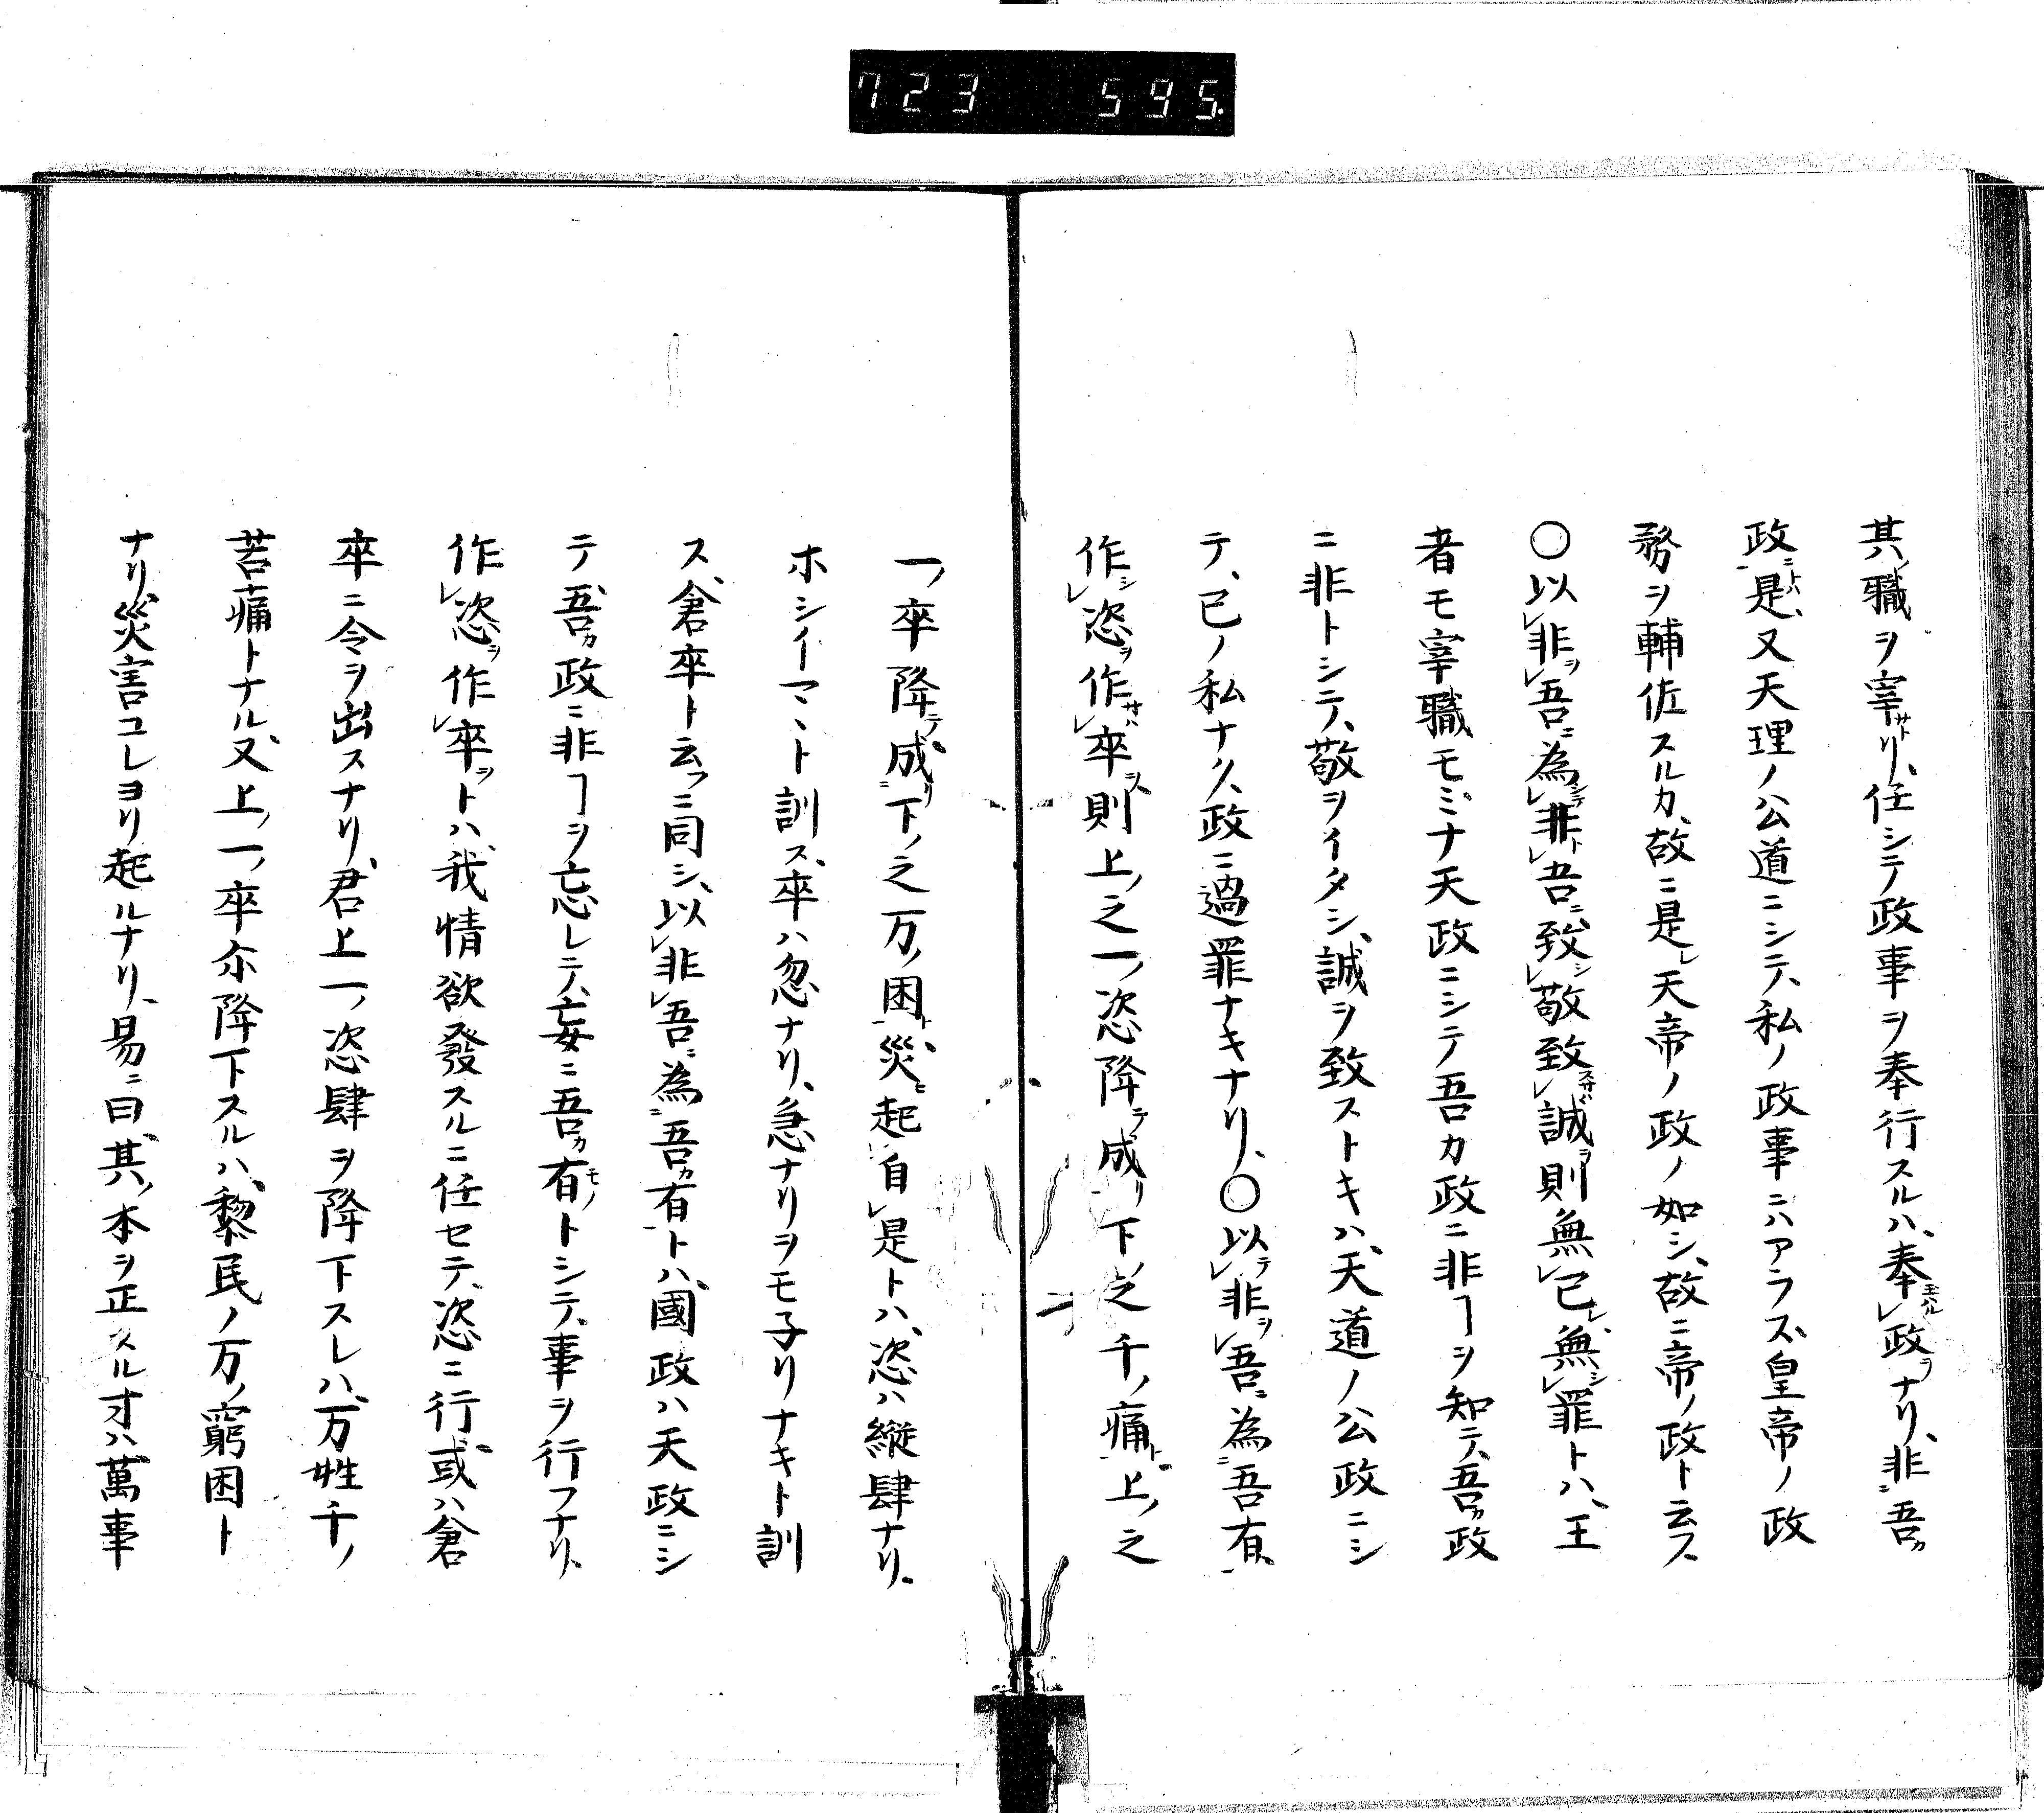 723 595.
其ノ職ヲ宰リ、任シテ政事ヲ奉行スルハ、奉レ政ヲナリ、非ニ吾カ
政ニトハ、是又天理ノ公道ニシテ、私ノ政事ニハアラズ、皇帝ノ政
務ヲ輔佐スルカ、故ニ是レ天帝ノ政ノ如シ、故ニ帝ノ政ト云ス
〇以レ非ヲレ吾ニ為シテレ非トレ吾ニ致シレ敬致スサバレ誠ヲ則無レ已レ無シレ罪トハ、王
者モ宰職モミナ天政ニシテ吾カ政ニ非ヿヲ知テ、吾カ政
ニ非トシテ、敬ヲイタシ、誠ヲ致ストキハ、天道ノ公政ニシ
テ、已ノ私ナク、政ニ過罪ナキナリ、〇以テレ非ヲレ吾ニ為ニ吾有一
作シレ恣ヲ作サハレ卒ヲ則上ノ之一ノ恣降テ成リ下ノ之千ノ痛ト上ノ之
一ノ卒降テ成リ下ノ之万ノ困ト災ヒ起ル自レ是トハ、恣ハ縦肆ナリ、
ホシイマヽト訓ス、卒ハ忽ナリ、急ナリヲモ子リナキト訓
ス、倉卒ト云フニ同シ、以レ非レ吾ニ為ニ吾カ有一トハ、國政ハ天政ニシ
テ吾カ政ニ非ヿヲ忘レテ、妄ニ吾カ有モノトシテ、事ヲ行フナリ、
作レ恣ヲ作レ卒ヲトハ、我情欲發スルニ任セテ、恣ニ行或ハ倉
卒ニ令ヲ出スナリ、君上一ノ恣肆ヲ降下スレハ、万姓千ノ
苦痛トナル、又上ノ一ノ卒尓降下スルハ、黎民ノ万ノ窮困ト
ナリ、災害コレヨリ起ルナリ、易ニ曰、其ノ本ヲ正スル才ハ萬事